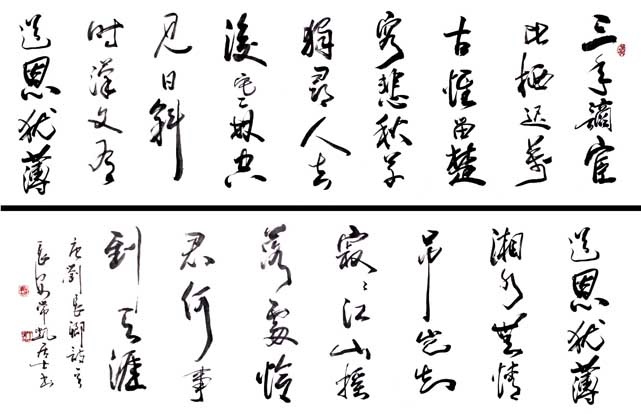 三年謫宦
此栖迟萬
古惟留楚
客悲秋草
獨尋人去
後寒林空
見日斜
時漢文有
道恩犹薄
道恩犹薄
湘水無情
吊岂知
寂〻江山摇
落處憐
君何事
到天涯
唐劉長卿詩
長安常凱居士书